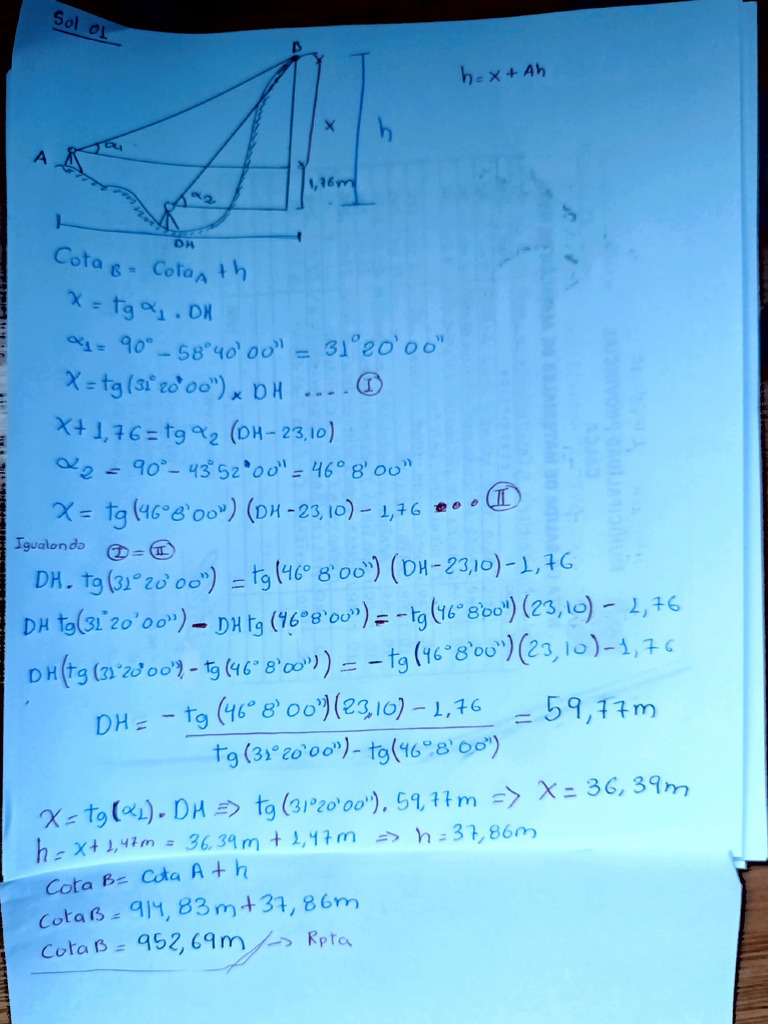 Sol 01
B
h = x + Ah
x
h
A
α1
1,76m
α2
DH
Cota B = Cota A + h
x = tg α1 . DH
α1 = 90° - 58°40'00" = 31°20'00"
x = tg(31°20'00") x DH .... I
x + 1,76 = tg α2 (DH - 23,10)
α2 = 90° - 43°52'00" = 46°8'00"
x = tg(46°8'00") (DH - 23,10) - 1,76 ... II
Igualando I = II
DH. tg(31°20'00") = tg(46°8'00") (DH - 23,10) - 1,76
DH tg(31°20'00") - DH tg(46°8'00") = -tg(46°8'00") (23,10) - 1,76
DH(tg(31°20'00") - tg(46°8'00")) = -tg(46°8'00")(23,10) - 1,76
DH = -tg(46°8'00")(23,10) - 1,76 / tg(31°20'00") - tg(46°8'00") = 59,77m
x = tg(α1). DH => tg(31°20'00"). 59,77m => x = 36,39m
h = x + 1,47m = 36,39m + 1,47m => h = 37,86m
Cota B = Cota A + h
Cota B = 914,83m + 37,86m
Cota B = 952,69m -> Rpta